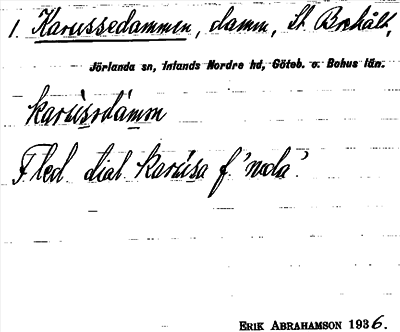 1. Karussedammen, damm, St. Borhålt,
Jörlanda sn, Inlands Nordre hd, Göteb. o. Bohus län.
karùsədámm
F. led dial. karùsa f. 'ruda'.
ERIK ABRAHAMSON 1936.